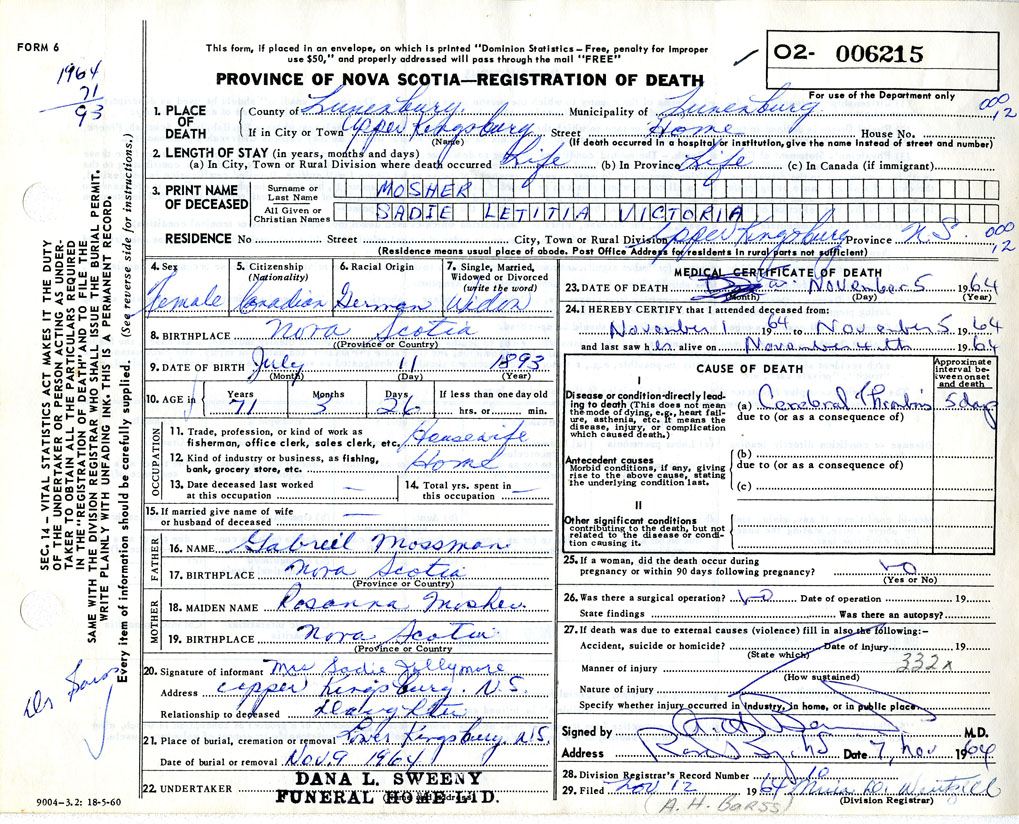 FORM 6
This form, if placed in an envelope, on which is printed "Dominion Statistics – Free, penalty for improper
use $50," and properly addressed will pass through the mail "FREE"
PROVINCE OF NOVA SCOTIA—REGISTRATION OF DEATH
O2- 006215
For use of the Department only
1964
71
93
000
12
1. PLACE OF DEATH
County of Lunenburg Municipality of Lunenburg
If in City or Town Upper Kingsburg Street Home House No.
(Name) (If death occurred in a hospital or institution, give the name instead of street and number)
2. LENGTH OF STAY (in years, months and days)
(a) In City, Town or Rural Division where death occurred Life (b) in Province Life (c) In Canada (if immigrant)
3. PRINT NAME OF DECEASED
Surname or Last Name MOSHER
All Given or Christian Names SADIE LETITIA VICTORIA
RESIDENCE No Street City, Town or Rural Division Upper Kingsburg Province N.S.
000
12
(Residence means usual place of abode. Post Office Address for residents in rural parts not sufficient)
SEC. 14 – VITAL STATISTICS ACT MAKES IT THE DUTY
OF THE UNDERTAKER OR PERSON ACTING AS UNDER-
TAKER TO OBTAIN ALL THE PARTICULARS REQUIRED
IN THE "REGISTRATION OF DEATH" AND TO FILE THE
SAME WITH THE DIVISION REGISTRAR WHO SHALL ISSUE THE BURIAL PERMIT.
WRITE PLAINLY WITH UNFADING INK. THIS IS A PERMANENT RECORD.
Every item of information should be carefully supplied. (See reverse side for instructions.)
4. Sex
Female
5. Citizenship
(Nationality)
Canadian
6. Racial Origin
German
7. Single, Married,
Widowed or Divorced
(write the word)
Widow
8. BIRTHPLACE Nova Scotia
(Province or Country)
9. DATE OF BIRTH July 11 1893
(Month) (Day) (Year)
10. AGE in Years Months Days If less than one day old
71 3 26 hrs. or min.
OCCUPATION
11. Trade, profession, or kind of work as
fisherman, office clerk, sales clerk, etc. Housewife
12. Kind of industry or business, as fishing,
bank, grocery store, etc. Home
13. Date deceased last worked
at this occupation —
14. Total yrs. spent in
this occupation —
15. If married give name of wife
or husband of deceased —
FATHER
16. NAME Gabriel Mossman
17. BIRTHPLACE Nova Scotia
(Province or Country)
MOTHER
18. MAIDEN NAME Rosanna Mosher
19. BIRTHPLACE Nova Scotia
(Province or Country)
20. Signature of informant Mrs Sadie Jollymore
Address Upper Kingsburg. N.S.
Relationship to deceased Daughter
21. Place of burial, cremation or removal Lower Kingsburg N.S.
Date of burial or removal Nov 9 1964
22. UNDERTAKER DANA L. SWEENY
FUNERAL HOME LTD.
(Name and address)
9004-3.2: 18-5-60
MEDICAL CERTIFICATE OF DEATH
23. DATE OF DEATH November 5 1964
(Month) (Day) (Year)
24. I HEREBY CERTIFY that I attended deceased from:
November 1 1964 to November 5 1964
and last saw her alive on November 4th 1964
CAUSE OF DEATH
Approximate
interval be-
tween onset
and death
I
Disease or condition directly lead-
ing to death (This does not mean
the mode of dying, e.g., heart fail-
ure, asthenia, etc. It means the
disease, injury, or complication
which caused death.)
(a) Cerebral Thrombosis 5 days
due to (or as a consequence of)
Antecedent causes
Morbid conditions, if any, giving
rise to the above cause, stating
the underlying condition last.
(b)
due to (or as a consequence of)
(c)
II
Other significant conditions
contributing to the death, but not
related to the disease or condi-
tion causing it.
25. If a woman, did the death occur during
pregnancy or within 90 days following pregnancy? no
(Yes or No)
26. Was there a surgical operation? no Date of operation 19
State findings Was there an autopsy?
27. If death was due to external causes (violence) fill in also the following:–
Accident, suicide or homicide? Date of injury 19
(State which)
Manner of injury 332x
(How sustained)
Nature of injury
Specify whether injury occurred in industry, in home, or in public place
Signed by M.D.
Address Date 7, Nov 1964
28. Division Registrar's Record Number 10
29. Filed Nov 12 1964
(Division Registrar)
(A. H. Barss)
Dr Barss